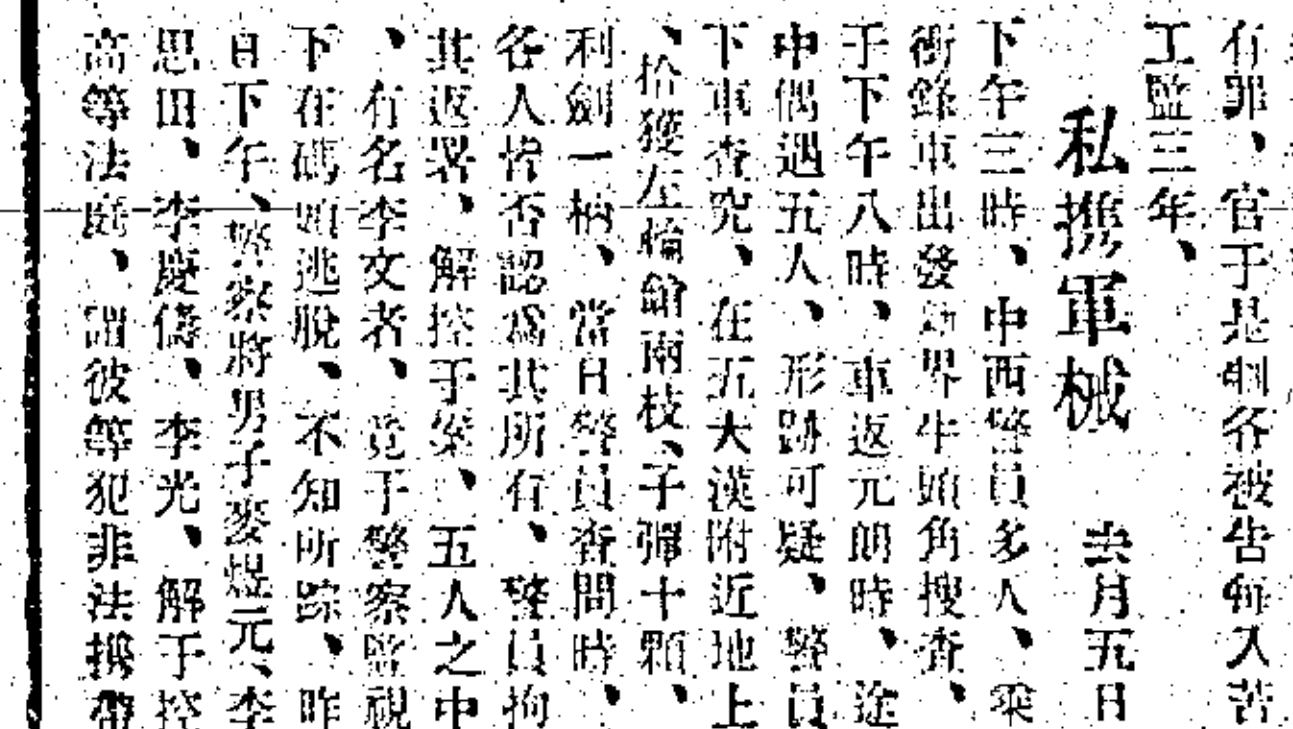 有罪、官于是判各被告每人苦
工監三年、
私携軍械　去月五日
下午三時、中西警員多人、乘
衝鋒車出發新界牛頭角搜查、
于下午八時、車返元朗時、途
中偶遇五人、形跡可疑、警員
下車查究、在五大漢附近地上
、拾獲左輪鎗兩枝、子彈十顆、
利劍一柄、當日警員查問時、
各人皆否認爲其所有、警員拘
其返署、解控于案、五人之中
、有名李文者、竟于警察監視
下在碼頭逃脫、不知所踪、昨
日下午、警察將男子麥煜元、李
思田、李慶儔、李光、解于控
高等法庭、謂彼等犯非法携帶